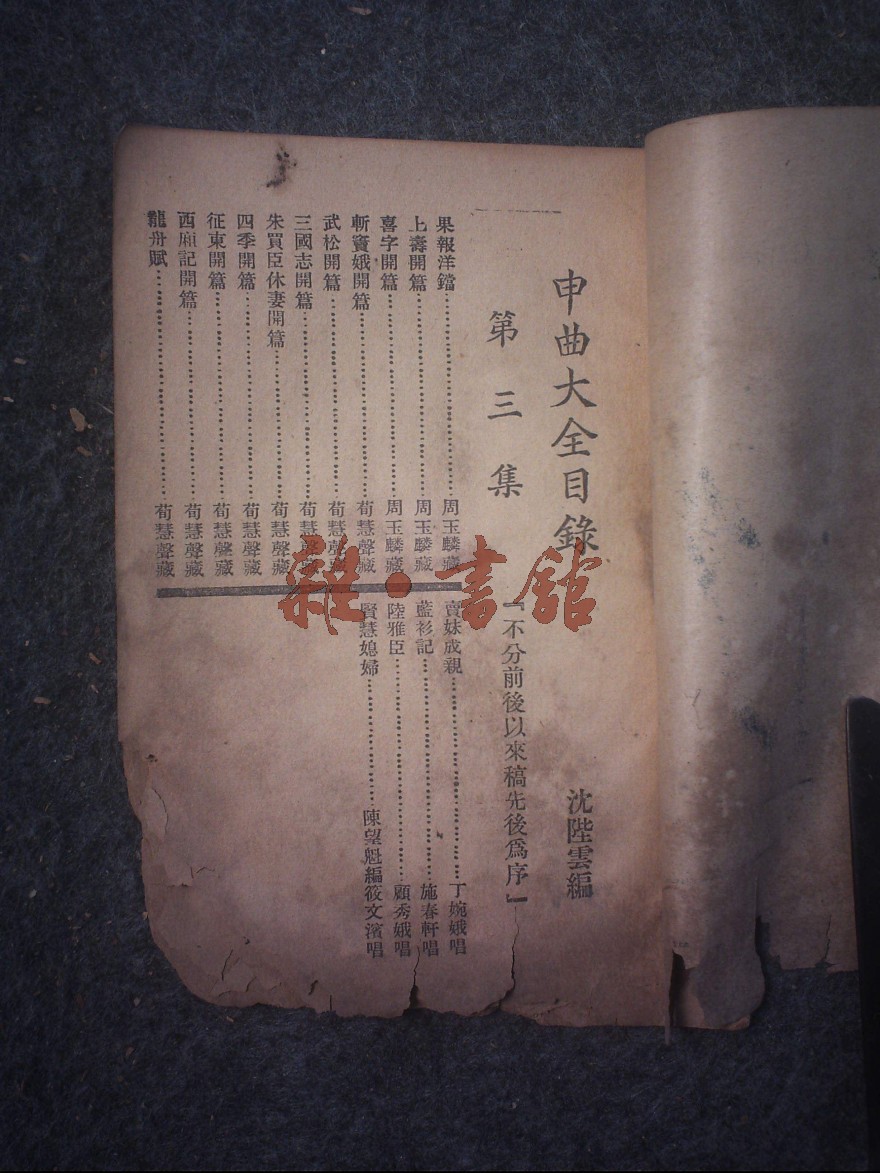 申曲大全目錄
沈陛雲編
第三集
『不分前後以來稿先後爲序』
果報洋鐺……周玉麟藏
上壽開篇……周玉麟藏
喜字開篇……周玉麟藏
斬竇娥開篇……荀慧聲藏
武松開篇……荀慧聲藏
三國志開篇……荀慧聲藏
朱買臣休妻開篇……荀慧聲藏
四季開篇……荀慧聲藏
征東開篇……荀慧聲藏
西廂記開篇……荀慧聲藏
龍舟賦……荀慧聲藏
賣妹成親……丁婉娥唱
藍衫記……施春軒唱
陸雅臣……顧秀娥唱
賢慧媳婦……陳望魁編筱文濱唱
雜·書館